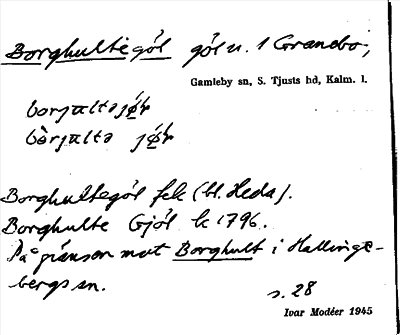 Borghultegöl göl n. 1 Granebo,
Gamleby sn, S. Tjusts hd, Kalm. l.
Borghultegöl fek (bl. Heda).
Borghulte Gjöl k 1796.
På gränsen mot Borghult i Hallinge-
bergs sn.
s. 28
Ivar Modéer 1945